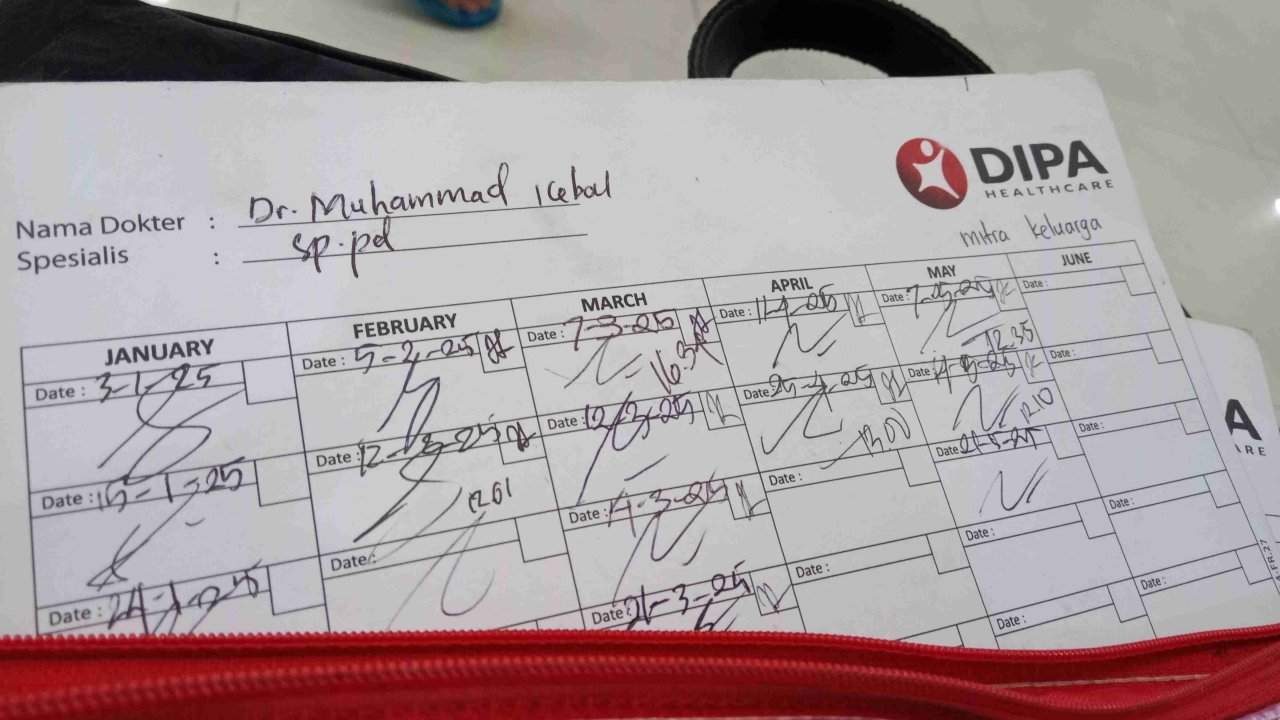 DIPA
HEALTHCARE
Nama Dokter : Dr. Muhammad Icbal
Spesialis : sp.pd
mitra keluarga
JANUARY FEBRUARY MARCH APRIL MAY JUNE
Date : 3-1-25
Date : 5-2-25
Date : 7-3-25
16.35
Date :
Date : 7-5-25
12.35
Date :
Date : 15-1-25
Date : 12-2-25
Date : 12-3-25
Date : 25-4-25
13.00
Date : 14-5-25
12.10
Date :
Date : 24-1-25
Date :
Date : 14-3-25
Date :
Date : 21-5-25
Date :
Date : 21-3-25
Date :
Date :
Date :
Date :
Date :
A
ARE